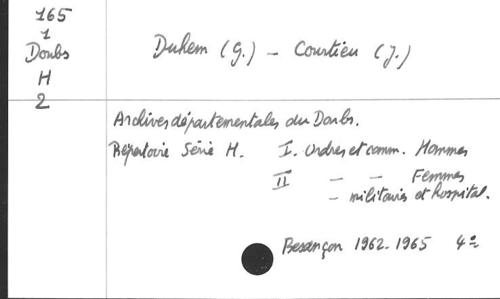 165
1
Doubs
H
2
Duhem (G.) - Courtieu (J.)
Archives départementales du Doubs.
Répertoire Série H. I. Ordres et comm. Hommes
II - - Femmes
- militaires et hospital.
Besançon 1962-1965 4º